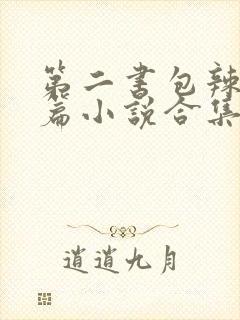 第二书包辣
篇小说合集
逍遥九月